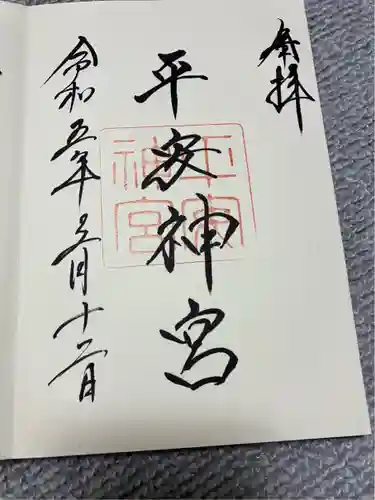 奉拝
平安神宮
平安
神宮
令和五年三月十二日